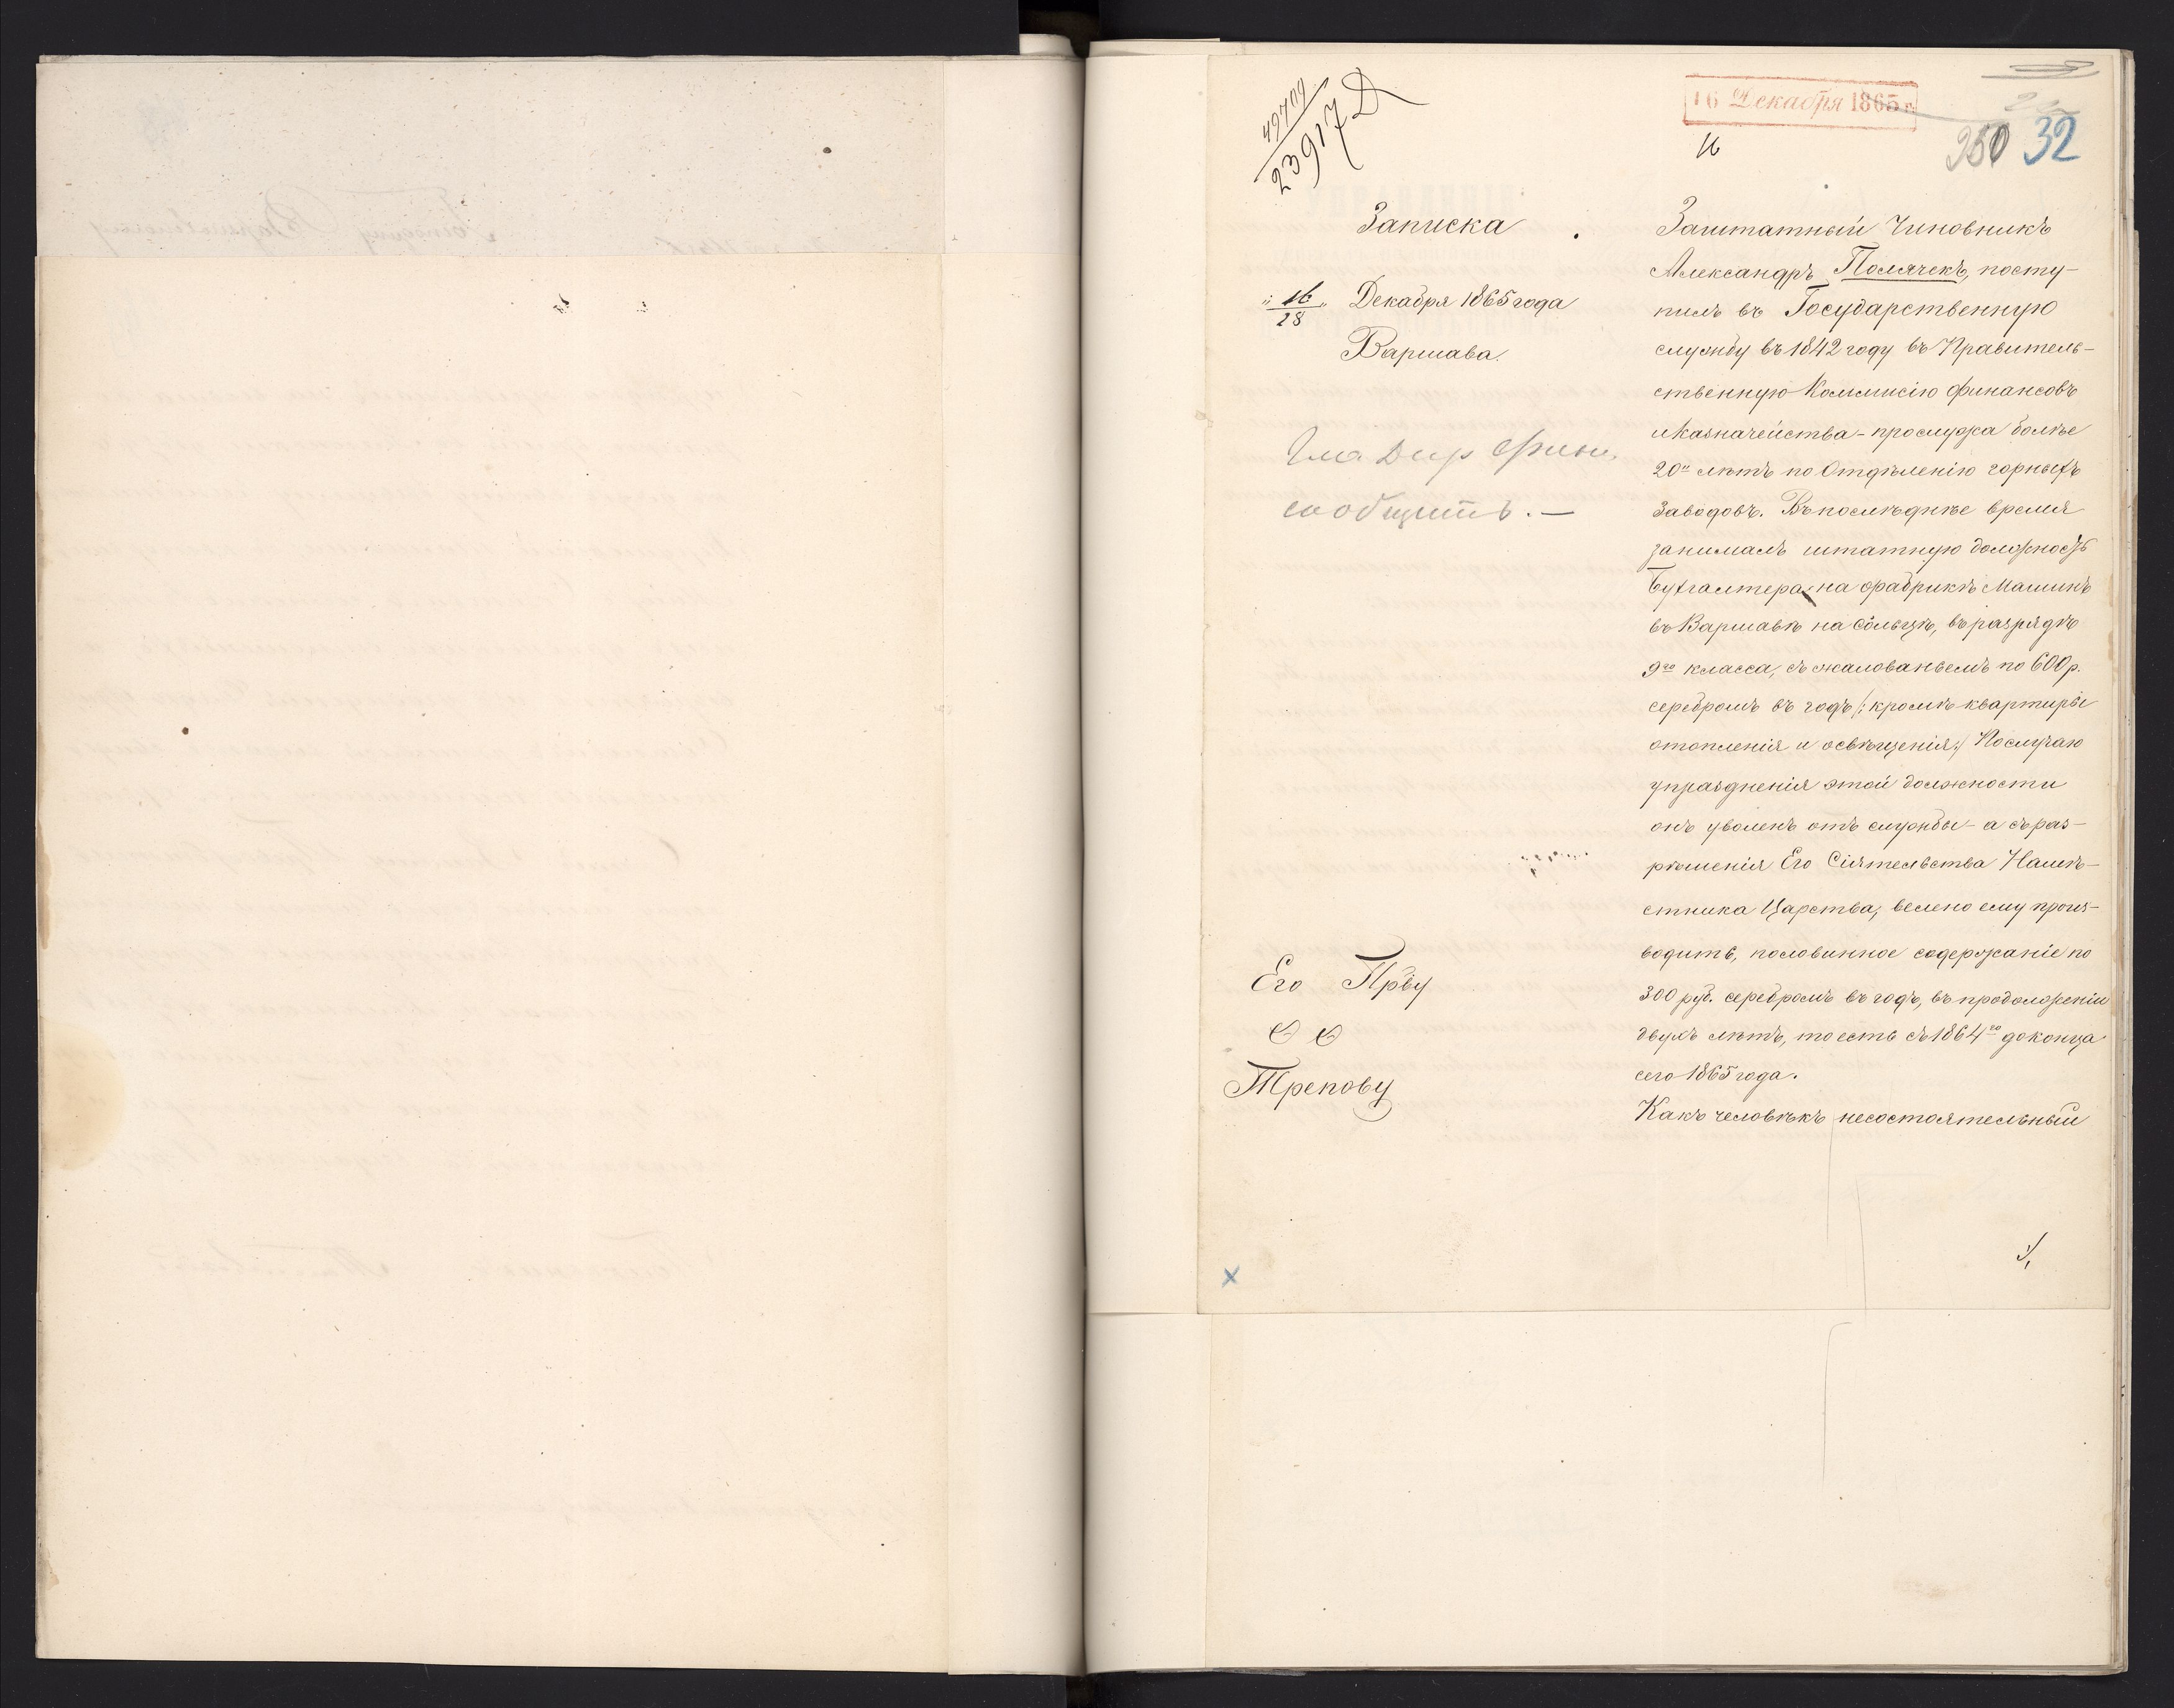 49709
23917 Д
16 Декабря 1865 г.
16
350 32
Записка
"16/28" Декабря 1865 года
Варшава.
сообщить. —
Его Прву
Ѳ Ѳ
Трепову
Заштатный Чиновникъ
Александръ Полячекъ, посту-
пилъ въ Государственную
службу въ 1842 году въ Правитель-
ственную Коммисію Финансовъ
и Казначейства - прослужа болѣе
20и лѣтъ по Отдѣленію горныхъ
Заводовъ. Въ послѣднѣе время
занималъ штатную должность
Бухгалтера на фабрикѣ Машинъ
въ Варшавѣ на Сольцѣ, въ разрядѣ
9го класса, съ жалованьемъ по 600 р.
серебромъ въ годъ /: кромѣ квартиры
отопленія и освѣщенія :/ По случаю
упраздненія этой должности
онъ уволенъ отъ службы - а съ раз-
рѣшенія Его Сіятельства Намѣ-
стника Царства, велено ему произ-
водить, половинное содержаніе по
300 руб. серебромъ въ годъ, въ продолженіи
двухъ лѣтъ, то есть съ 1864го до конца
сего 1865 года.
Какъ человѣкъ несостоятельный